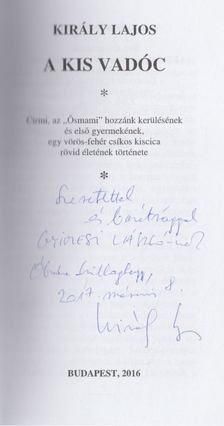 KIRÁLY LAJOS
A KIS VADÓC
*
Cirmi, az „Ősmami” hozzánk kerülésének
és első gyermekének,
egy vörös-fehér csíkos kiscica
rövid életének története
*
Szeretettel
és barátsággal
LÁSZLÓnak
Óbuda
2017. március 8.
Király L
BUDAPEST, 2016